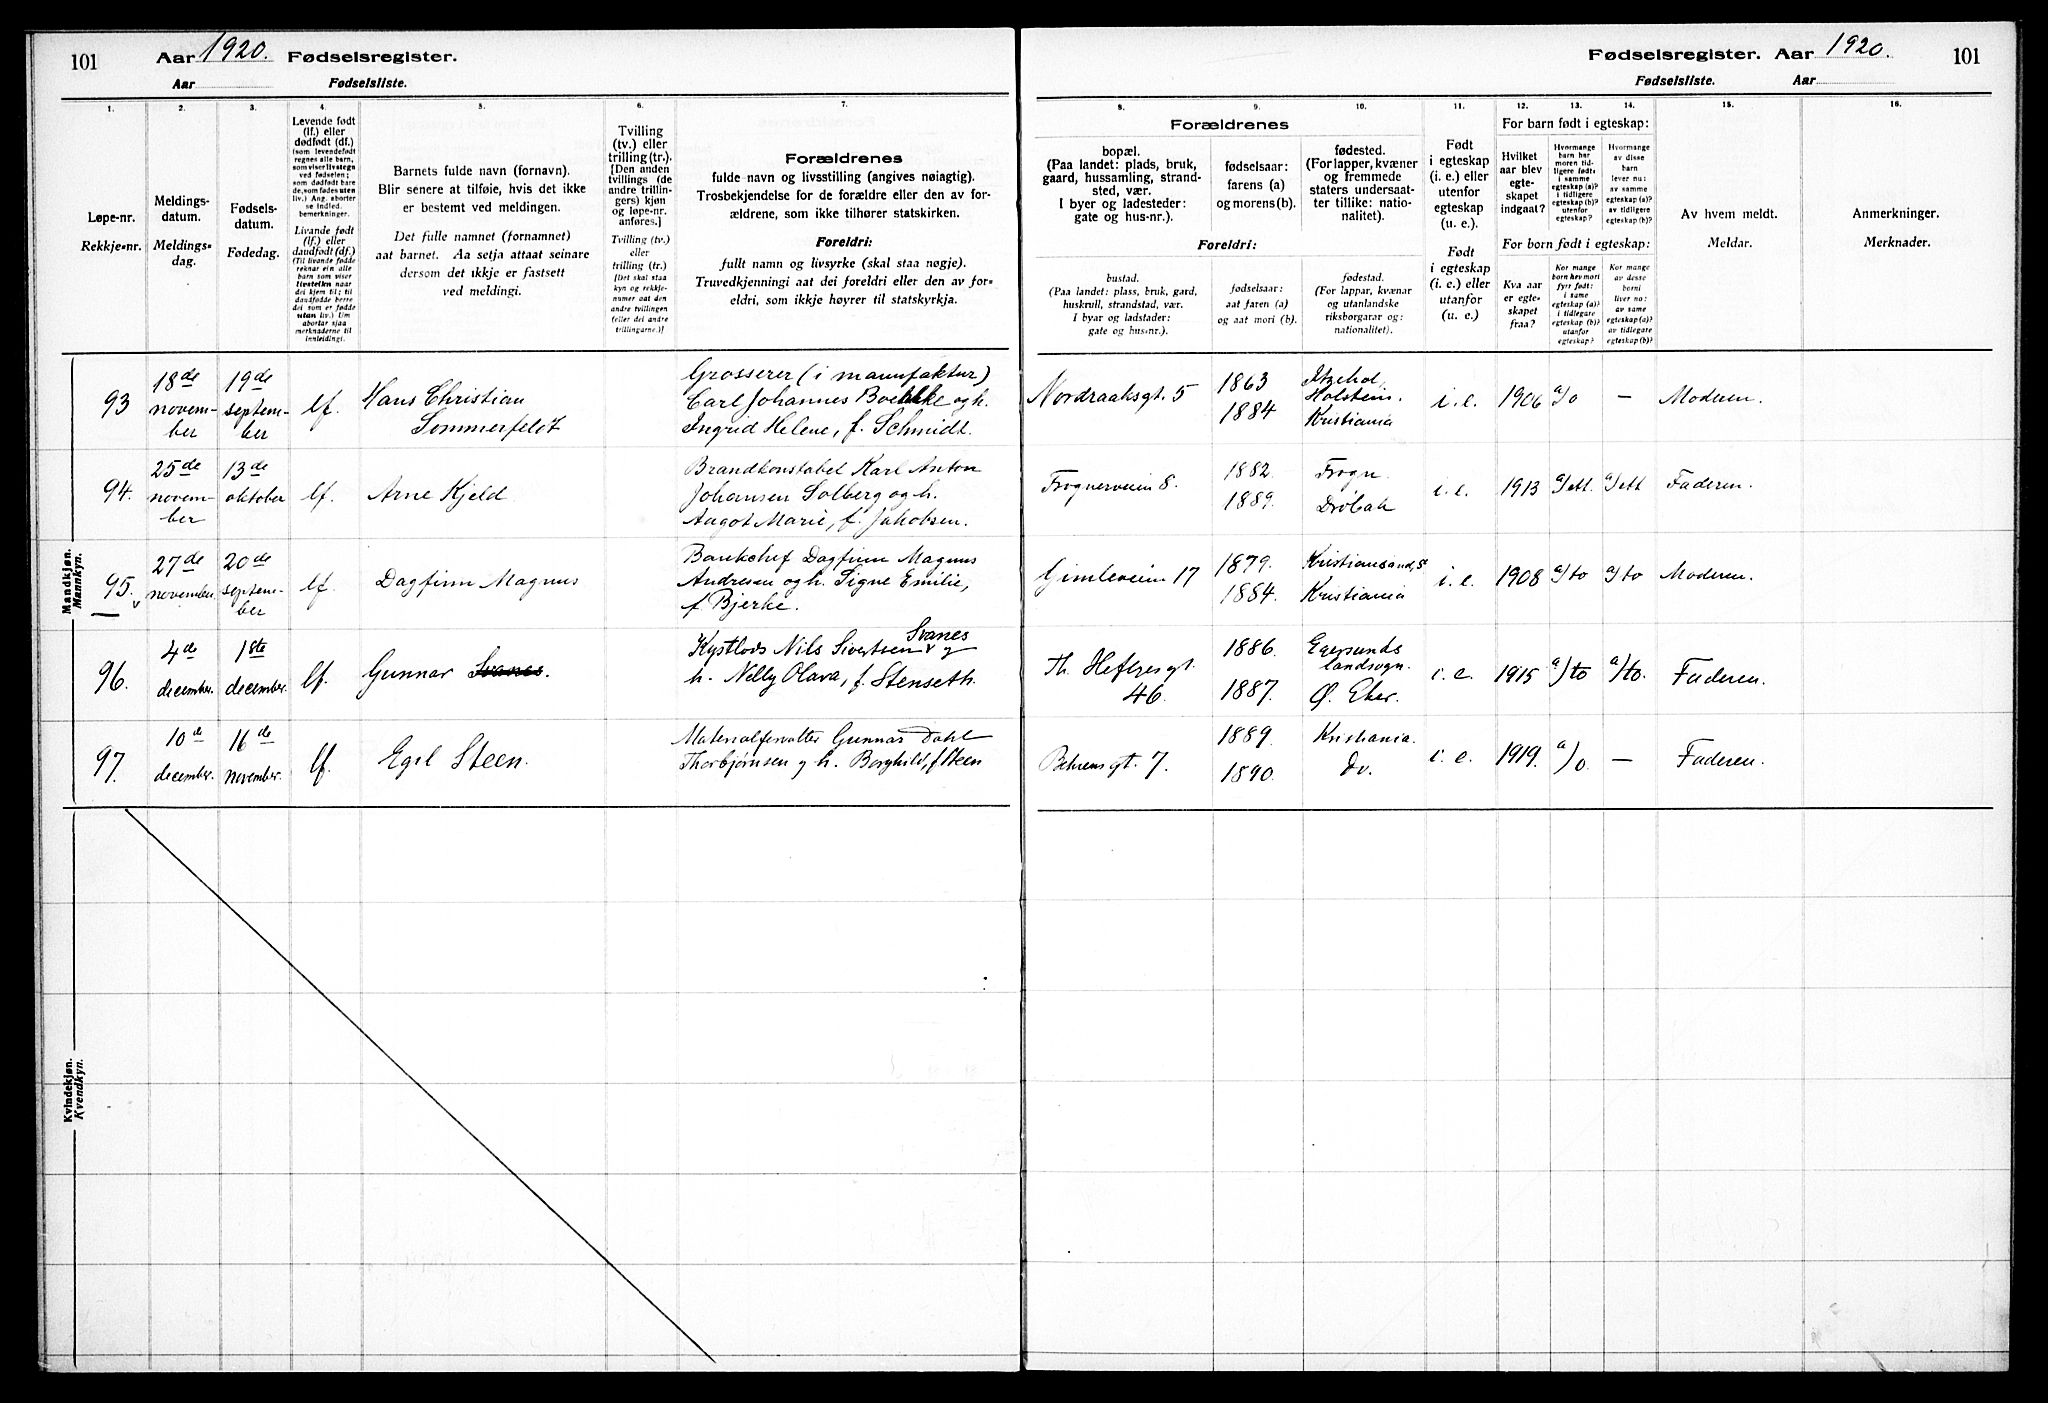 101
Aar 1920. Fødselsregister.
Aar Fødselsliste.
Fødselsregister. Aar 1920.
101
Fødselsliste. Aar
1.
Løpe-nr.
Rekkje-nr.
2.
Meldings-
datum.
Meldings-
dag.
3.
Fødsels-
datum.
Fødedag.
4.
Levende født
(lf.) eller
dødfødt (df.)
(som levendefødt
regnes alle barn,
som viser livstegn
ved fødselen;
som dødfødt bare
de, som fødes uten
liv.) Ang. aborter
se indled.
bemerkninger.
Livande født
(lf.) eller
daudfødt (df.)
(Til livande fødde
reknar ein alle
born som viser
livsteikn naar
dei kjem til; til
daudfødde berre
dei som er fødde
utan liv.) Um
abortar sjaa
merknaderne til
innleidingi.
5.
Barnets fulde navn (fornavn).
Blir senere at tilføie, hvis det ikke
er bestemt ved meldingen.
Det fulle namnet (fornamnet)
aat barnet. Aa setja attaat seinare
dersom det ikkje er fastsett
ved meldingi.
6.
Tvilling
(tv.) eller
trilling (tr.).
[Den anden
tvillings (de
andre trillin-
gers) kjøn
og løpe-nr.
anføres.]
Tvilling (tv.)
eller
trilling (tr.)
[Det skal staa
kyn og rekkje-
numer aat den
andre tvillingen
(eller dei andre
trillingarne.)]
7.
Forældrenes
fulde navn og livsstilling (angives nøiagtig).
Trosbekjendelse for de forældre eller den av for-
ældrene, som ikke tilhører statskirken.
Foreldri:
fullt namn og livsyrke (skal staa nøgje).
Truvedkjenningi aat dei foreldri eller den av for-
eldri, som ikkje høyrer til statskyrkja.
Forældrenes
8.
bopæl.
(Paa landet: plads, bruk,
gaard, hussamling, strand-
sted, vær.
I byer og ladesteder:
gate og hus-nr.).
9.
fødselsaar:
farens (a)
og morens (b).
10.
fødested.
(For lapper, kvæner
og fremmede
staters undersaat-
ter tillike: natio-
nalitet).
Foreldri:
bustad.
(Paa landet: plass, bruk, gard,
huskrull, strandstad, vær.
I byar og ladstader:
gate og hus-nr.).
fødselsaar:
aat faren (a)
og aat mori (b).
fødestad.
(For lappar, kvænar
og utanlandske
riksborgarar og:
nationalitet).
11.
Født
i egteskap
(i. e.) eller
utenfor
egteskap
(u. e.).
Født
i egteskap
(i. e.) eller
utanfor
(u. e.).
For barn født i egteskap:
12.
Hvilket
aar blev
egte-
skapet
indgaat?
13.
Hvormange
barn har
moren tid-
ligere født:
i samme
egteskap (a)?
i tidligere
egteskap (b)?
utenfor
egteskap?
14.
Hvormange
av disse
barn
lever nu:
av samme
egteskap (a)?
av tidligere
egteskap (b)?
For born født i egteskap:
Kva aar
er egte-
skapet
fraa?
Kor mange
born hev mori
fyrr født:
i same
egteskap (a)?
i tidlegare
egteskap (b)?
utanfor
egteskap?
Kor mange
av desse
borni
liver no:
av same
egteskap (a)?
av tidlegare
egteskap (b)?
15.
Av hvem meldt.
Meldar.
16.
Anmerkninger.
Merknader.
Mandkjøn.
Mannkyn.
93
18de
novem-
ber
19de
septem-
ber
lf.
Hans Christian
Sommerfeldt
Grosserer (i manufaktur)
Carl Johannes og h.
Ingrid Helene, f. Schmidt.
Nordraaksgt. 5
1863
1884
Itzehol,
Holstein.
Kristiania
i. e.
1906
a/0
—
Moderen.
94.
25de
novem-
ber
13de
oktober
lf.
Arne Kjeld
Brandkonstabel Karl Anton
Johansen Solberg og h.
Aagot Marie, f. Jakobsen.
Frognerveien 8.
1882.
1889.
Frogn.
Drøbak
i. e.
1913
a/ett.
a/ett
Faderen.
95.
27de
november.
20de
septem-
ber
lf.
Dagfinn Magnus
Bankchef Dagfinn Magnus
Andresen og h. Signe Emilie,
f. Bjerke.
Gimleveien 17
1879.
1884.
Kristiansand, S.
Kristiania
i. e.
1908
a/to
a/to
Moderen.
96.
4de
december.
1ste
december.
lf.
Gunnar Svanes.
Kystlods Nils Sivertsen Svanes og
h. Nelly Olava, f. Stenseth.
Th. Heftyesgt.
46.
1886.
1887.
Egersunds
landsogn.
Ø. Eker.
i. e.
1915
a/to
a/to.
Faderen.
97.
10de
december.
16de
november.
lf.
Egil Steen.
Materialforvalter Gunnar Dahl
Thorbjørnsen og h. Borghild, f. Steen
Behrensgt. 7.
1889.
1890.
Kristiania.
Do.
i. e.
1919.
a/0.
—
Faderen.
Kvindekjøn.
Kvendkyn.